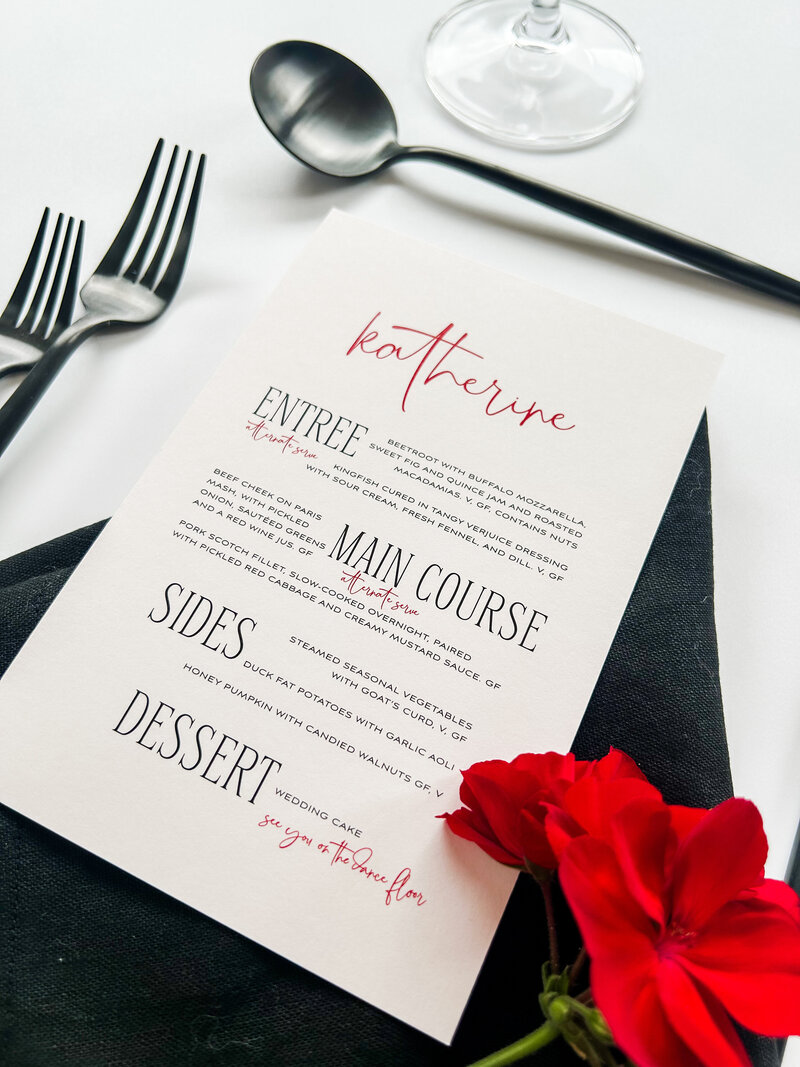 katherine
ENTREE
alternate serve
BEETROOT WITH BUFFALO MOZZARELLA,
SWEET FIG AND QUINCE JAM AND ROASTED
MACADAMIAS. V, GF, CONTAINS NUTS
KINGFISH CURED IN TANGY VERJUICE DRESSING
WITH SOUR CREAM, FRESH FENNEL, AND DILL. V, GF
MAIN COURSE
alternate serve
BEEF CHEEK ON PARIS
MASH, WITH PICKLED
ONION, SAUTÉED GREENS
AND A RED WINE JUS, GF
PORK SCOTCH FILLET, SLOW-COOKED OVERNIGHT, PAIRED
WITH PICKLED RED CABBAGE AND CREAMY MUSTARD SAUCE. GF
SIDES
STEAMED SEASONAL VEGETABLES
WITH GOAT'S CURD, V, GF
DUCK FAT POTATOES WITH GARLIC AOLI
HONEY PUMPKIN WITH CANDIED WALNUTS GF, V
DESSERT
WEDDING CAKE
see you on the dance floor